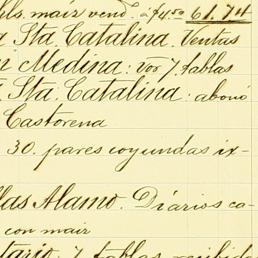 hls. maiz vend. á $4.50 61.74
Sta. Catalina. Ventas
Medina: vor 7 tablas
Sta. Catalina: abonó
Castorena
30. pares coyundas ix-
las Alamo. Diarios ca-
con maiz
tario. 7 tablas recibida